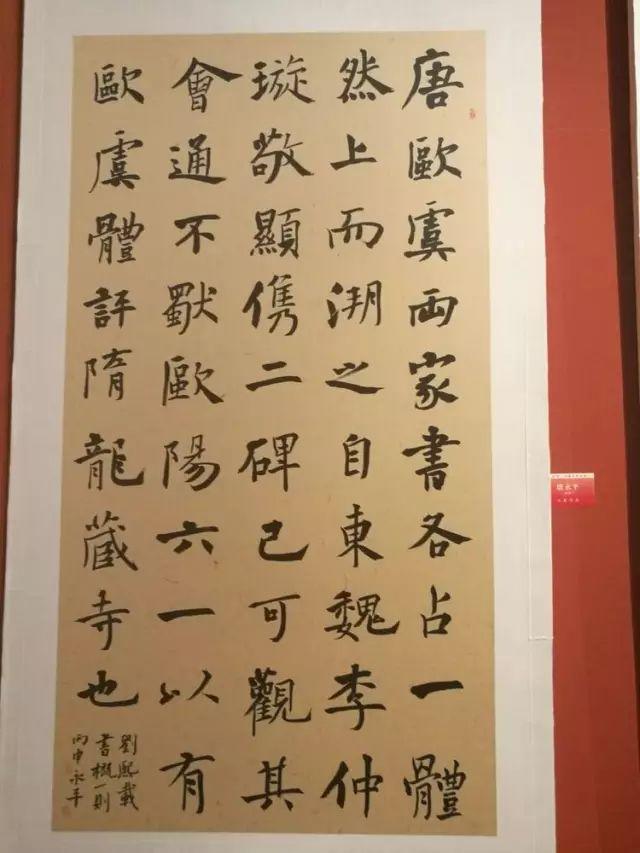 唐歐虞兩家書各占一體
然上而溯之自東魏李仲
璇敬顯儁二碑已可觀其
會通不獨歐陽六一以有
歐虞體評隋龍藏寺也
劉熙載
書概一則
丙申永平